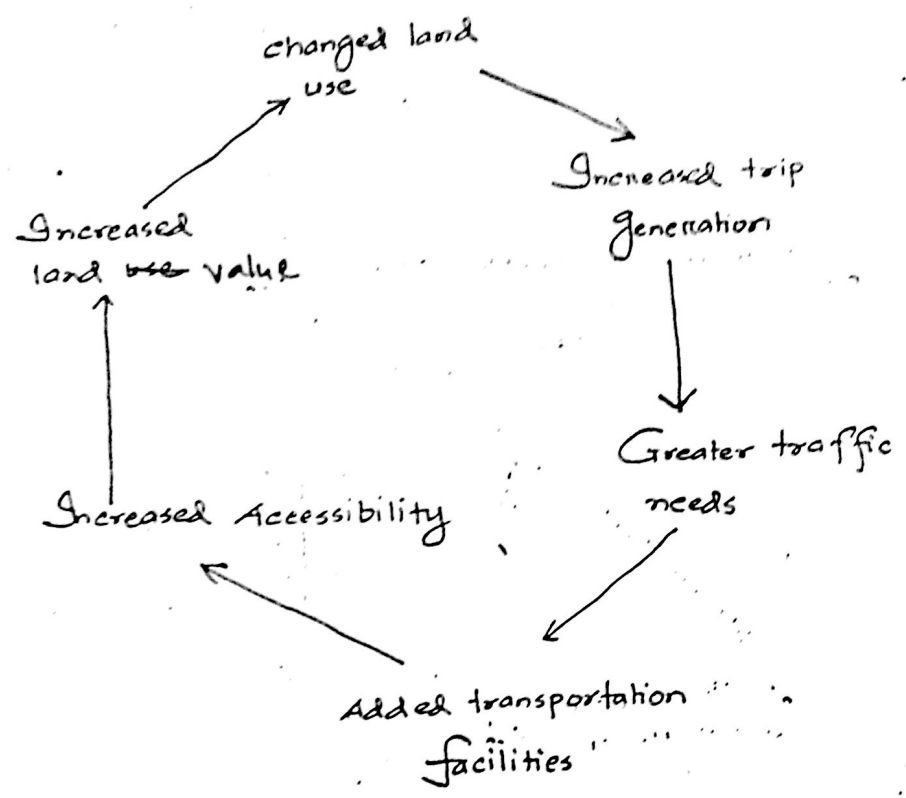 changed land
use
Increased trip
generation
Greater traffic
needs
Added transportation
facilities
Increased Accessibility
Increased
land use value